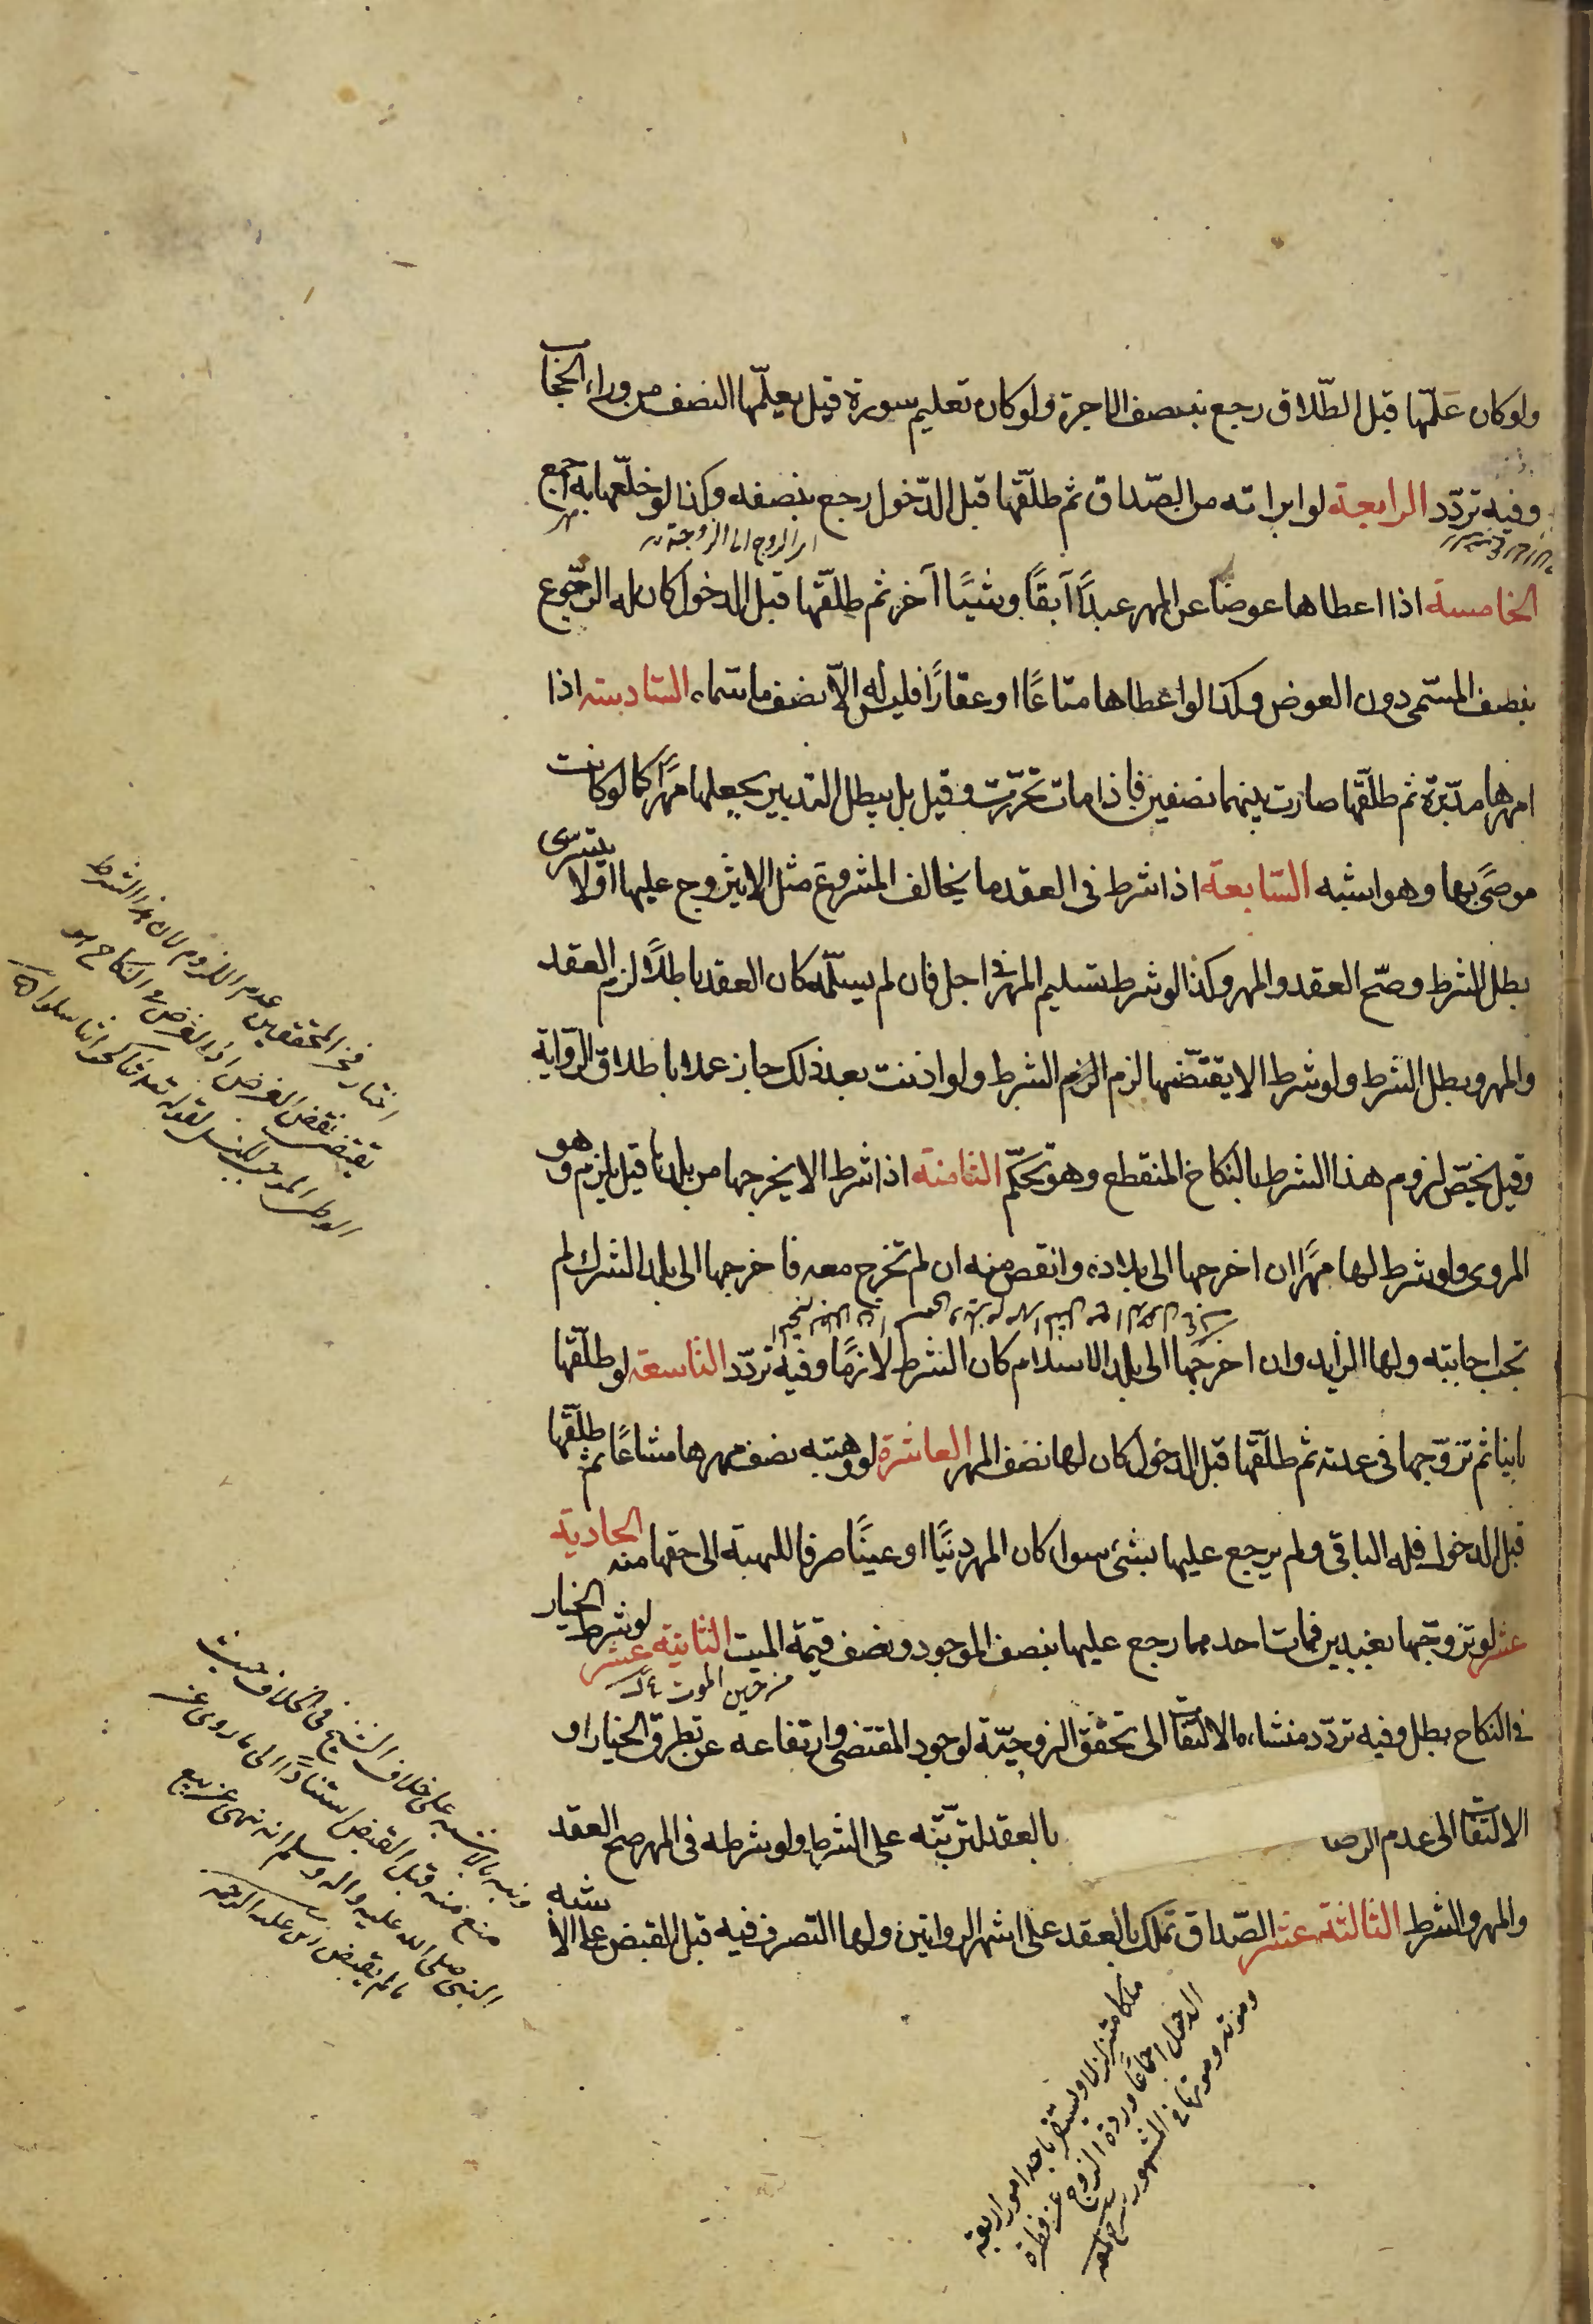 ولو كان علّمها قبل الطّلاق رجع بنصف الاجرة ولو كان تعليم سورة قيل يعلّمها النصف من وراء الحجاب
وفيه تردّد الرابعة لو ابراته من الصّداق ثم طلّقها قبل الدّخول رجع بنصفه وكذا لو خلعها به اجمع
الخامسة اذا اعطاها عوضا عن المهر عبدًا آبقًا وشيًا آخر ثم طلّقها قبل الدخول كان له الرّجوع
بنصف المسّمى دون العوض وكذا لو اعطاها متاعًا او عقارًا فليس له الاّ نصف ما سّماه السّادسة اذا
امهرها مدبّرة ثم طلّقها صارت بينهما نصفين فاذا مات تحرّرت وقيل بل يبطل التدبير بجعلها مهرًا كما لو كانت
موصًى بها وهو اشبه السّابعة اذا شرط فى العقد ما يخالف المشروع مثل الا يتزوج عليها او لا يتسرى
بطل الشرط وصّح العقد والمهر وكذا لو شرط تسليم المهر فى اجل فان لم يسلّمه كان العقد باطلاً لزم العقد
والمهر وبطل الشرط ولو شرط الا يقتضّها لزم الشرط ولو اذنت بعد ذلك جاز عملا باطلاق الرّواية
وقيل يختصّ لزوم هذا الشرط بالنكاح المنقطع وهو تحكّم الثامنة اذا شرط الا يخرجها من بلدها قيل يلزم وهو
المروى ولو شرط لها مهرًا ان اخرجها الى بلاده وانقص منه ان لم تخرج معه فاخرجها الى بلد الشرك لم
تجب اجابته ولها الزايد وان اخرجها الى بلد الاسلام كان الشرط لازمًا وفيه تردّد التاسعة لو طلّقها
باينا ثم تزوّجها فى عدته ثم طلّقها قبل الدخول كان لها نصف المهر العاشرة لو وهبته نصف مهرها مشاعًا ثم طلّقها
قبل الدخول فله الباقى ولم يرجع عليها بشئ سوا كان المهر دينًا او عينًا صرفا للهبة الى حقها منه الحادية
عشر لو تزوجّها بعبدين فمات احدهما رجع عليها بنصف الموجود ونصف قيمة الميت الثانية عشر لو شرط الخيار
من حين الموت
فى النكاح بطل وفيه تردّد منشاءه الالتفات الى تحقّق الزوجيّة لوجود المقتضى وارتفاعه عن تطرق الخيار او
الالتفات الى عدم الرضا بالعقد لترتّبه على الشرط ولو شرطه فى المهر صح العقد
والمهر والشرط الثالثة عشر الصّداق تملك بالعقد على اشهر الروايتين ولها التصرف فيه قبل القبض على الاشبه
اختار فخر المحققين عدم اللزوم لان هذا الشرط
يقتضى نقض الغرض اذ الغرض فى النكاح هو
ونبه بالاشبه على خلاف الشيخ فى الخلاف حيث
منع منه قبل القبض استنادًا الى ما روى عن
النبى صلى الله عليه واله وسلم انه نهى عن بيع
ما لم يقبض
ملكا متزلزلا ويستقر باحد امور اربعة
الدخول اجماعًا وردة الزوج عن فطرة
وموته وموتها فى المشهور